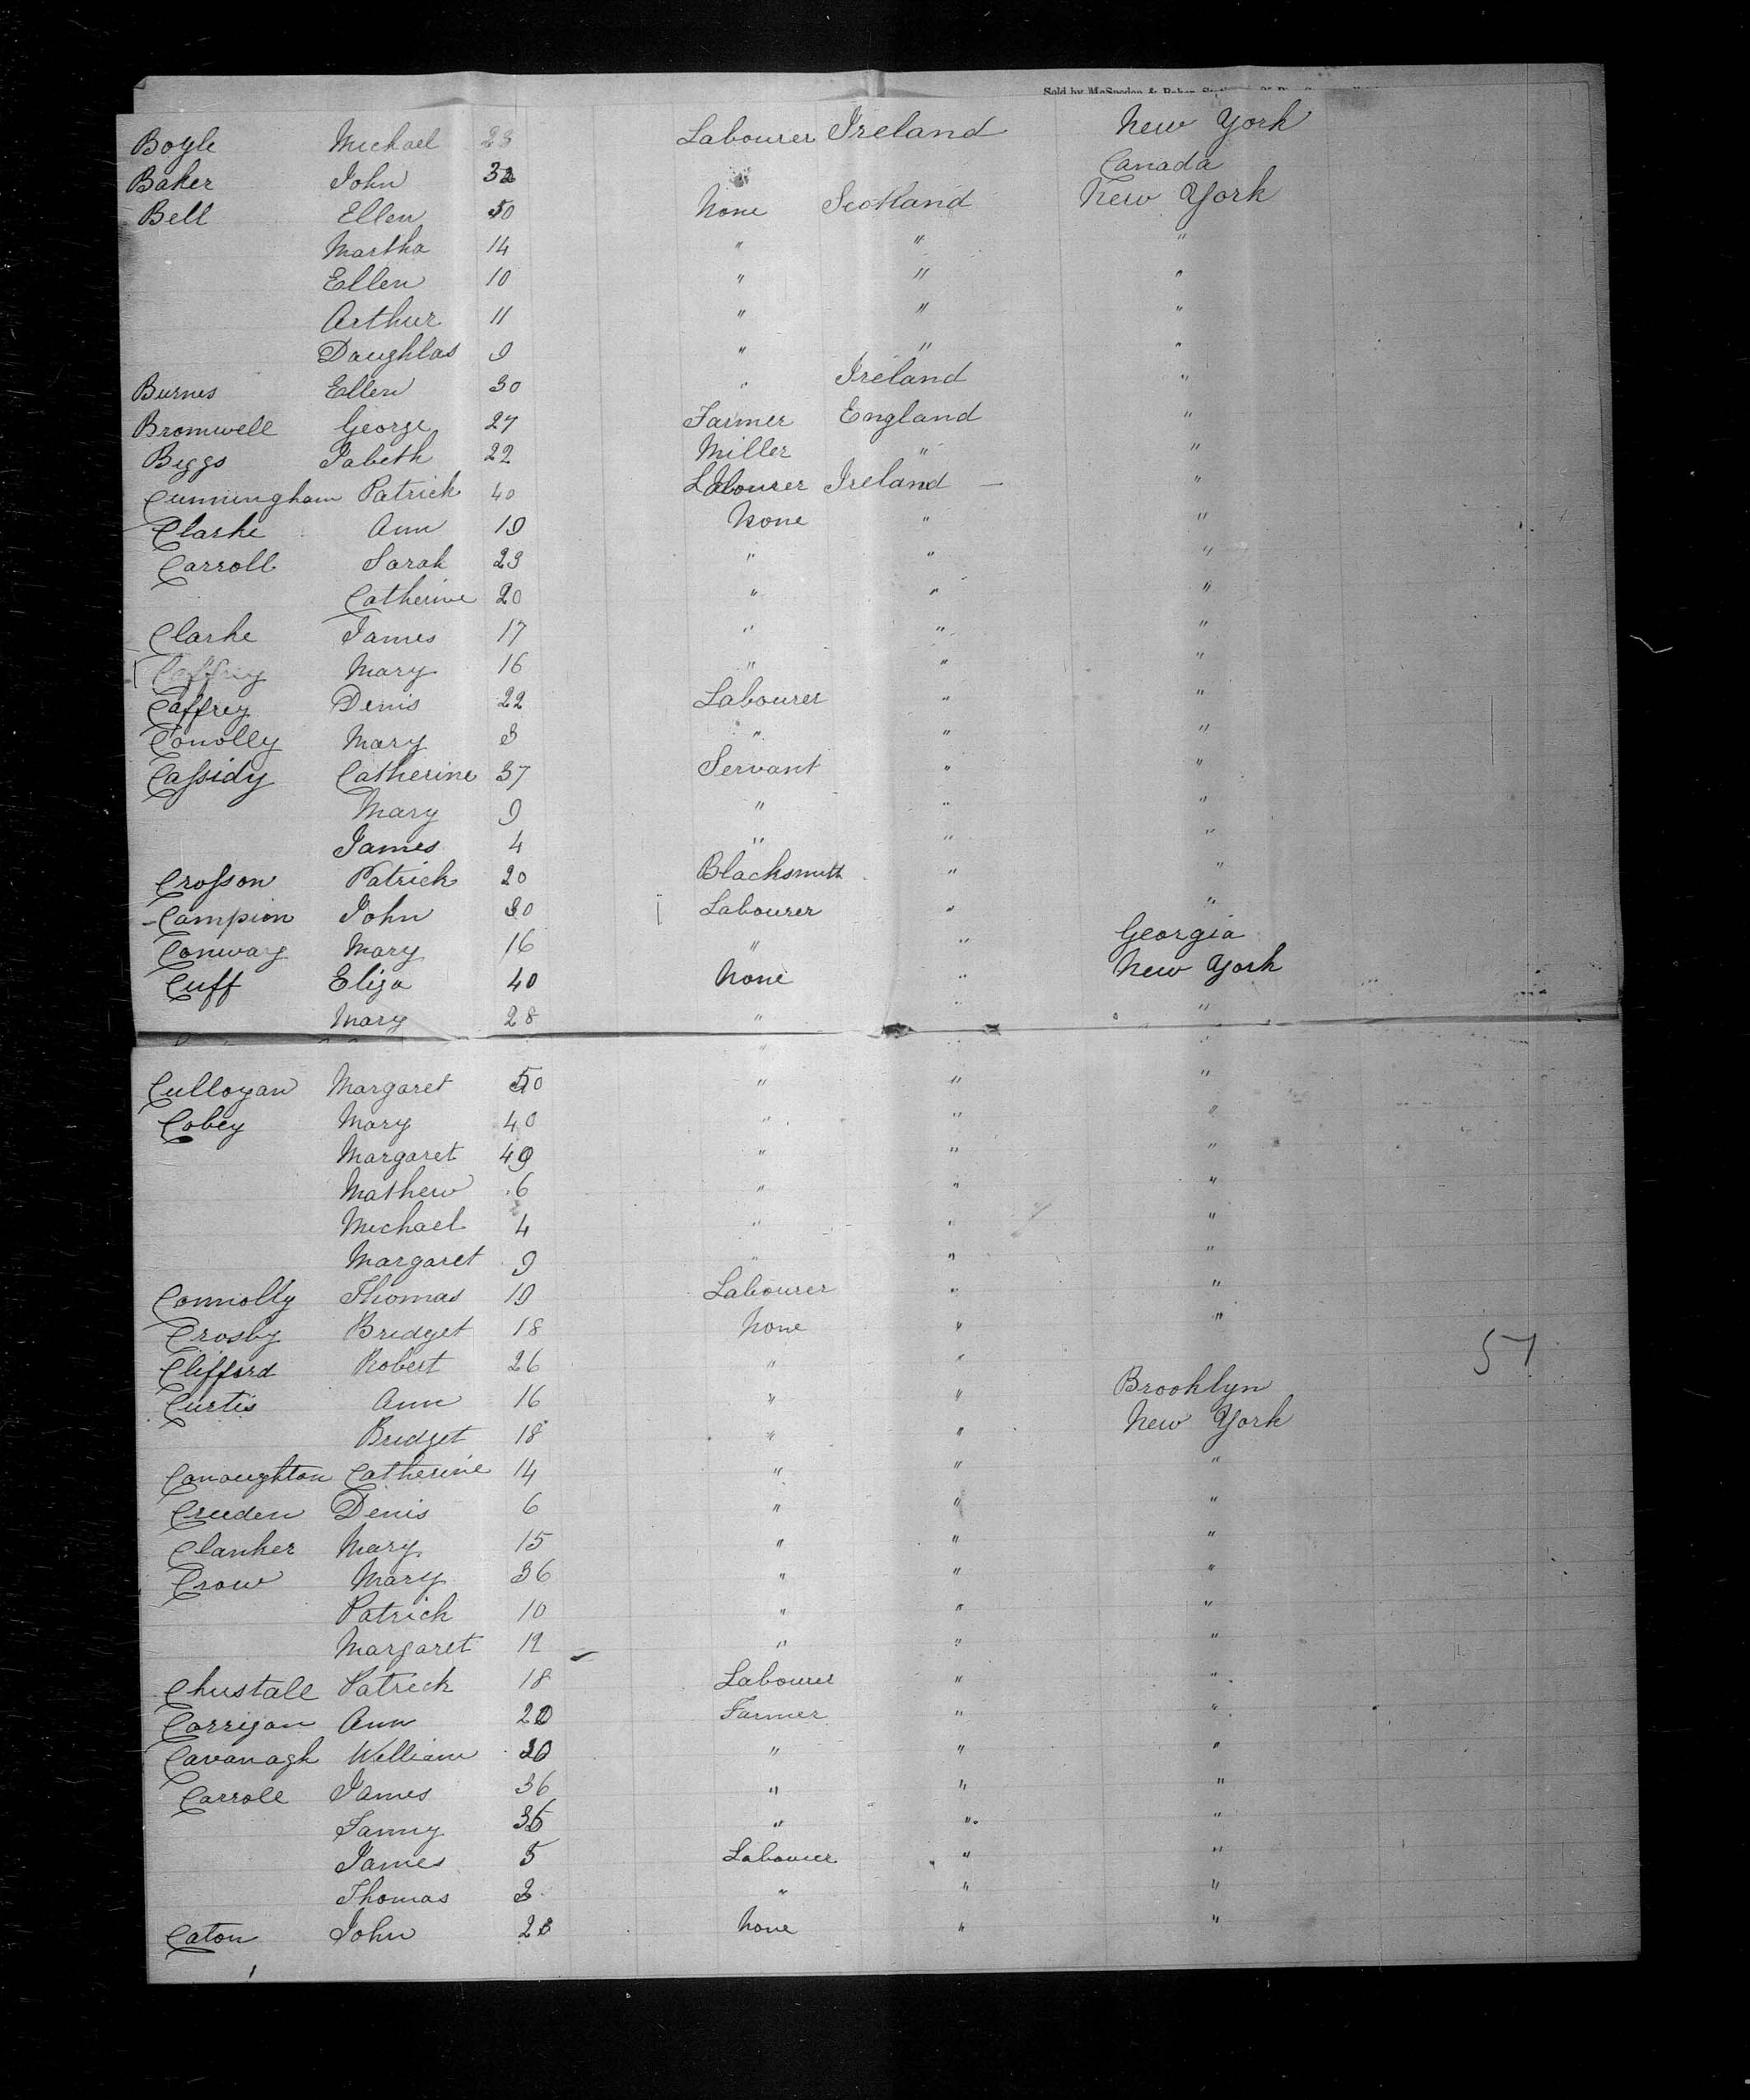 Sold by McSpedon & Baker
Boyle Michael 23 Labourer Ireland New York
Baker John 32 " Canada
Bell Ellen 50 None Scotland New York
Martha 14 " " "
Ellen 10 " " "
Arthur 11 " " "
Daughlas 9 " " "
Burnes Ellen 30 " Ireland "
Bromwell George 27 Farmer England "
Beggs Jabeth 22 Miller " "
Cunningham Patrick 40 Labourer Ireland — "
Clarke Ann 19 None " "
Carroll Sarah 23 " " "
Catherine 20 " " "
Clarke James 17 " " "
Caffrey Mary 16 " " "
Caffrey Denis 22 Labourer " "
Conolly Mary 3 " " "
Cassidy Catherine 37 Servant " "
Mary 9 " " "
James 4 " " "
Crosson Patrick 20 Blacksmith " "
Campion John 30 Labourer " "
Conway Mary 16 " " Georgia
Cuff Eliza 40 None " New York
Mary 28 " " "
" " "
Culloyan Margaret 50 " " "
Cobey Mary 40 " " "
Margaret 49 " " "
Mathew 6 " " "
Michael 4 " " "
Margaret 9 " " "
Connolly Thomas 19 Labourer " "
Crosby Bridget 18 None " "
Clifford Robert 26 " "
57
Curtis Ann 16 " " Brooklyn
Bridget 18 " " New York
Conoughton Catherine 14 " " "
Creeden Denis 6 " " "
Clanker Mary 15 " " "
Crow Mary 36 " " "
Patrick 10 " " "
Margaret 12 " " "
Chustall Patrick 18 Labourer " "
Corrigan Ann 20 Farmer " "
Cavanagh William 20 " " "
Carroll James 36 " " "
Fanny 35 " " "
James 5 Labourer " "
Thomas 2 " " "
Caton John 23 None " "